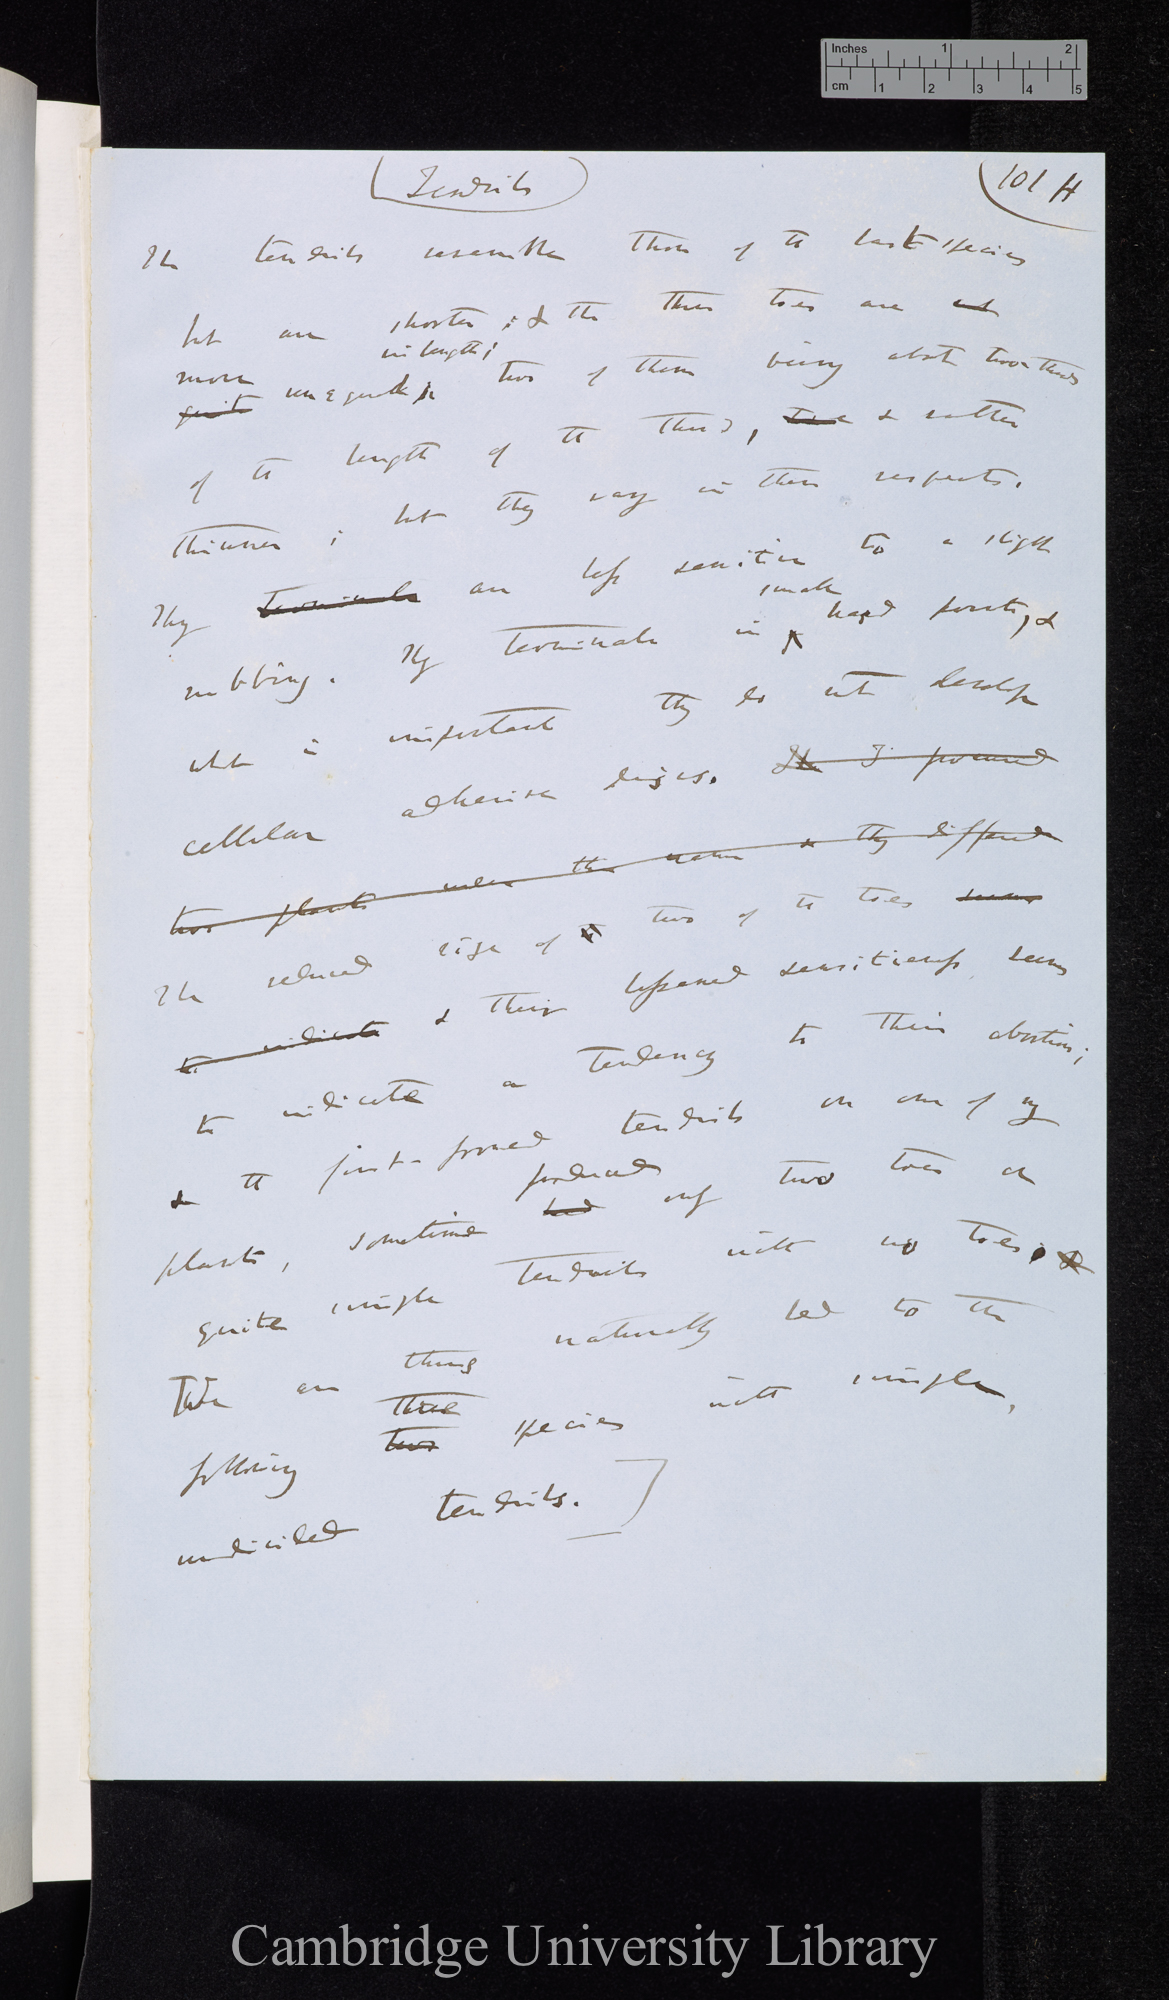 Inches 1 2
cm 1 2 3 4 5
Tendrils
101 H
The tendrils resemble those of the last species
but are shorter; & the three toes are not
in length;
more
quite unequal, two of them being about two-thirds
of the length of the third, & rather
thinner; but they vary in these respects.
They terminate are less sensitive to a slight
small
rubbing. They terminate in hard points, &
what is important they do not develope
cellular adhesive discs. The I procured
two plants under this name & they differed
The reduced size of two of the toes seems
to indicate & their lessened sensitiveness seems
to indicate a tendency to their abortion;
& the first-formed tendrils on one of my
produced
plants, sometimes had only two toes or
quite simple tendrils with no toes; &
We are thus naturally led to the
three
following two species with simple,
undivided tendrils.
Cambridge University Library